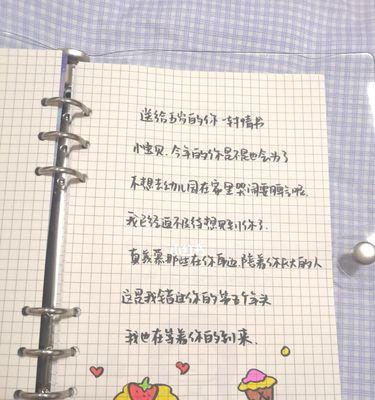 送给五岁的你一封情书
小宝贝.今年的你是不是也会为了
不想去幼儿园在家里哭闹耍脾气呢.
我已经迫不及待想见到你了.
真羡慕那些在你身边陪着你长大的人
这是我错过你的第五个年头
我也在等着你的到来.